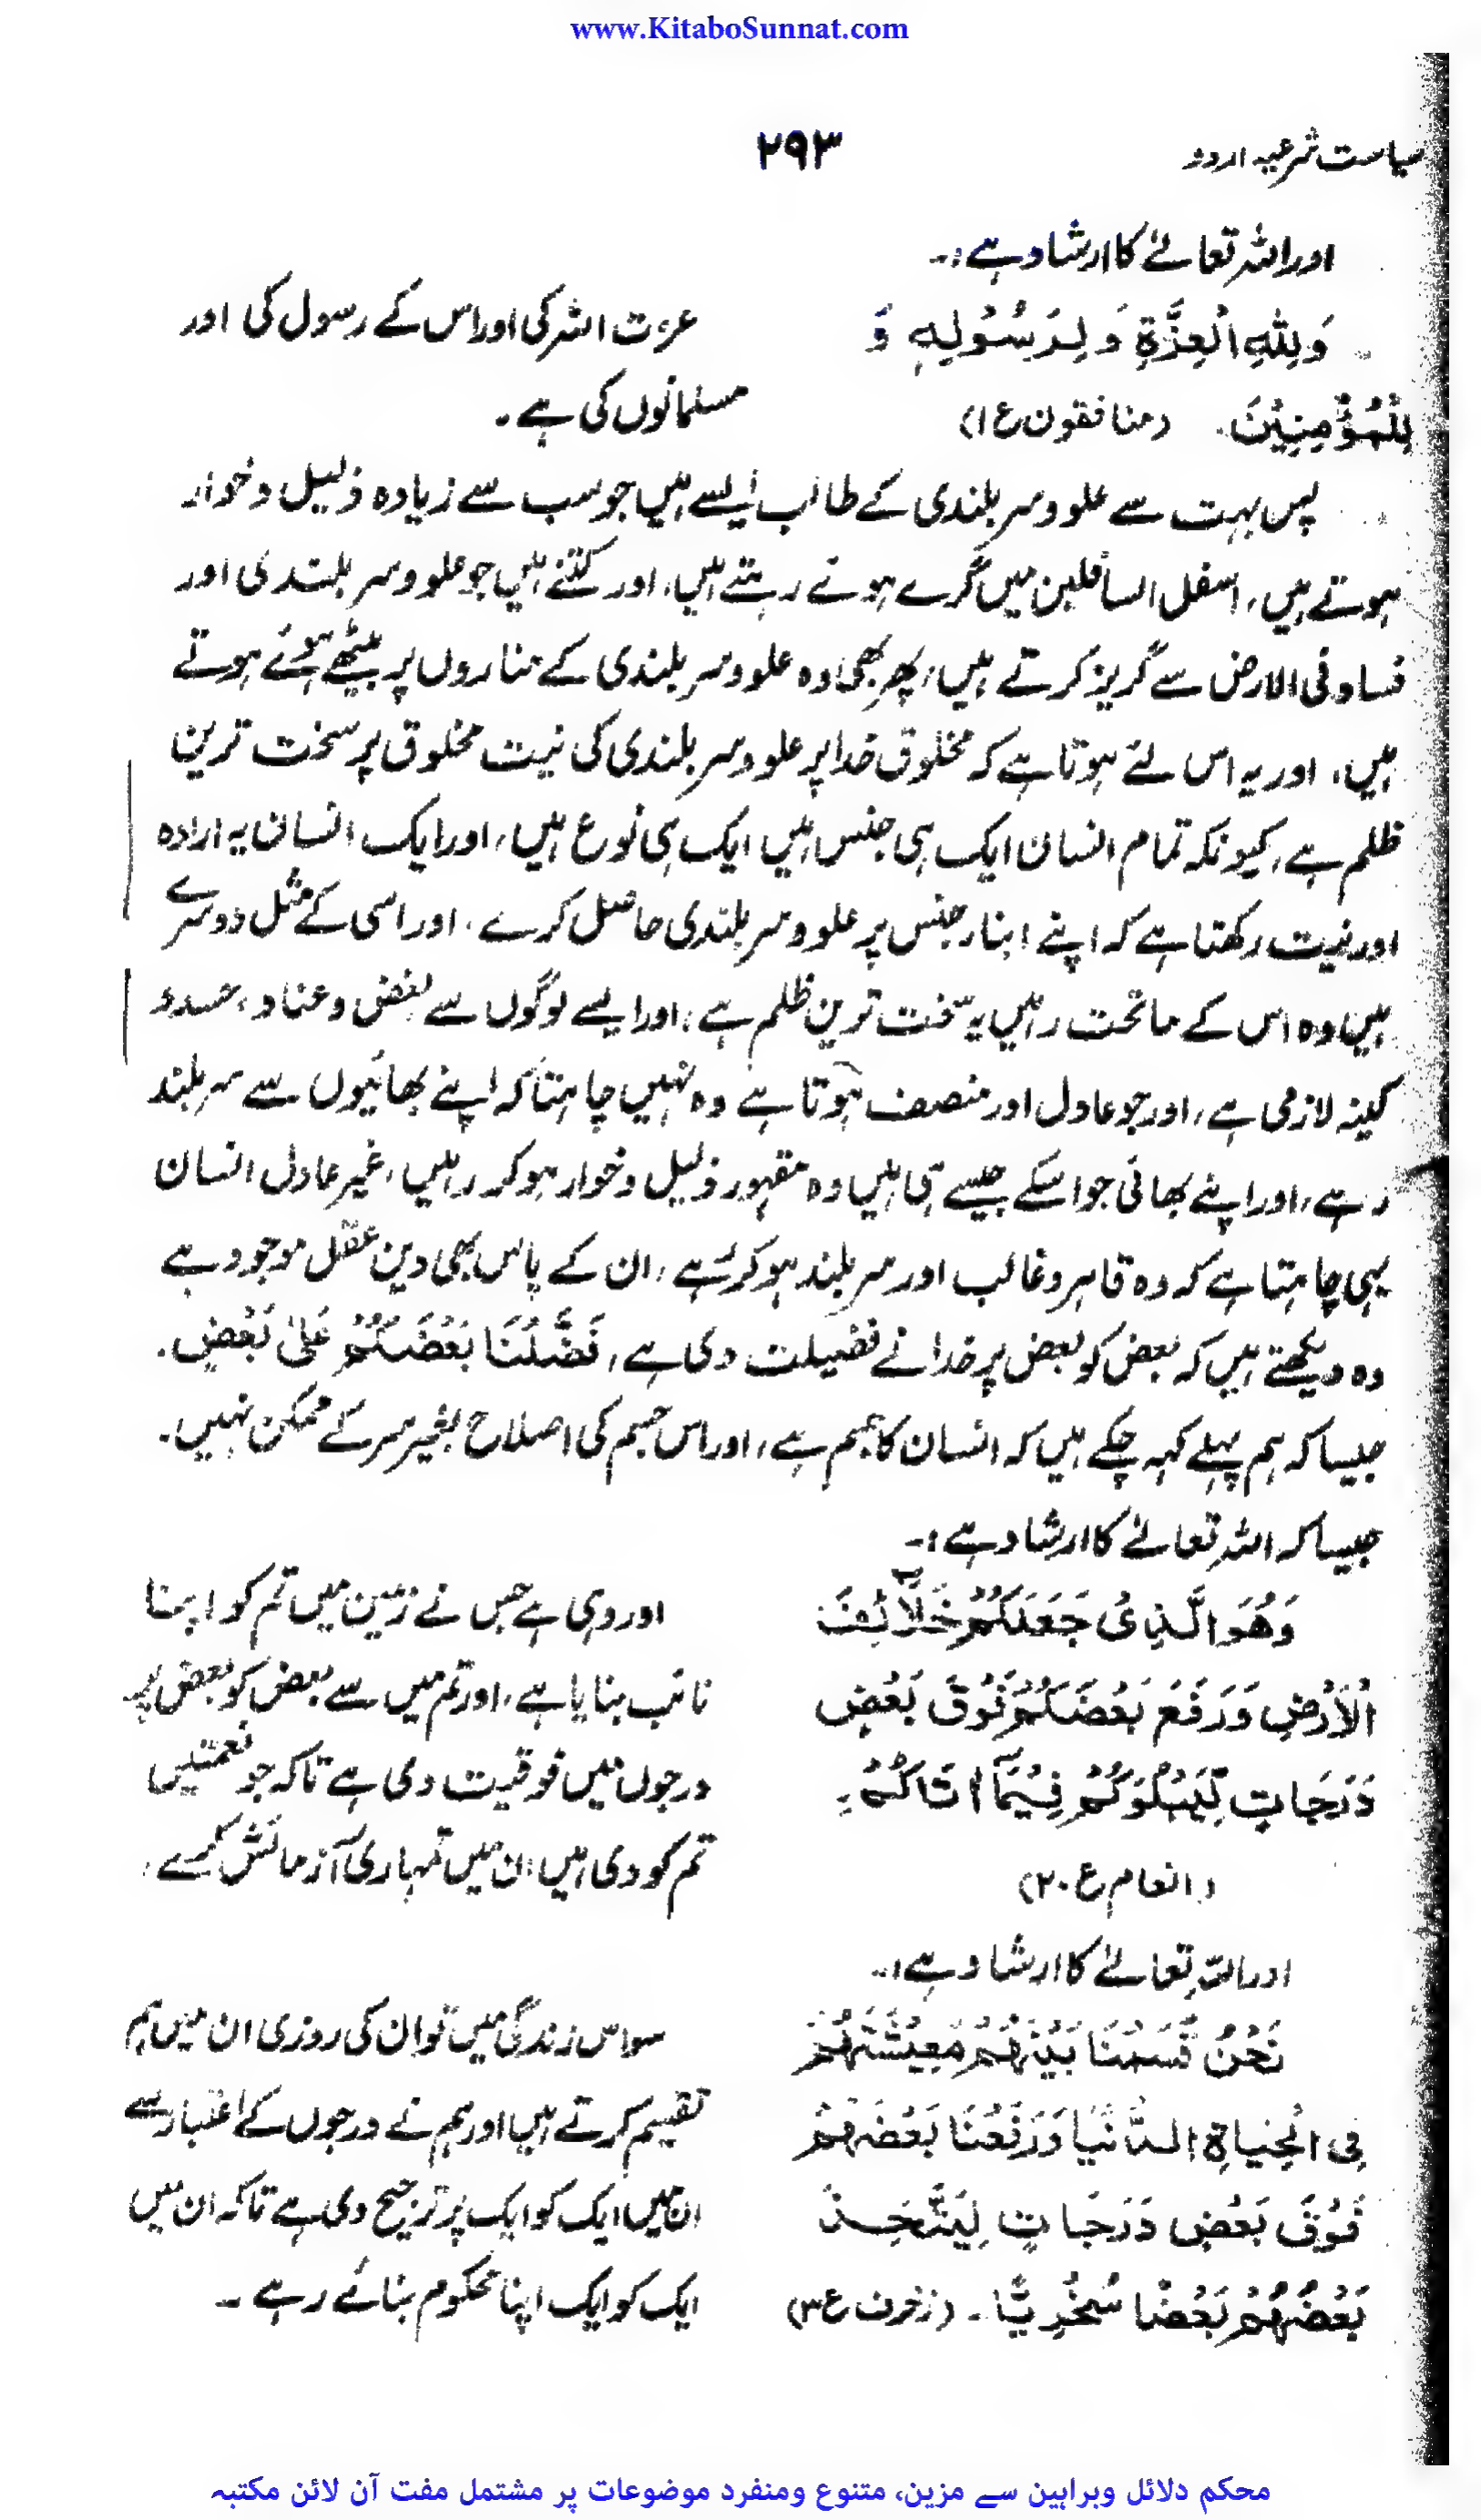 www.KitaboSunnat.com
سیاست شرعیہ اردو
۲۹۳
اور اللہ تعالےٰ کا ارشاد ہے :-
وَلِلّٰهِ الْعِزَّةِ وَ لِرَسُوْلِهٖ وَ
عزت اللہ کی اور اس کے رسول کی اور
لِلْمُؤْمِنِيْنَ. (منافقون ع ۱)
مسلمانوں کی ہے ۔
پس بہت سے علو و سر بلندی کے طالب ایسے ہیں جو سب سے زیادہ ذلیل و خوار
ہوتے ہیں، اسفل السافلین میں گرے ہوئے رہتے ہیں، اور کتنے ہیں جو علو و سر بلندی اور
فساد فی الارض سے گریز کرتے ہیں، پھر بھی وہ علو و سر بلندی کے مناروں پر بیٹھے ہوئے ہوتے
ہیں، اور یہ اس لئے ہوتا ہے کہ مخلوق خدا پر علو و سر بلندی کی نیت مخلوق پر سخت ترین
ظلم ہے، کیونکہ تمام انسان ایک ہی جنس ہیں ایک ہی نوع ہیں، اور ایک انسان یہ ارادہ
اور نیت رکھتا ہے کہ اپنے ابنار جنس پر علو و سر بلندی حاصل کرے، اور اسی کے مثل دوسرے
ہیں وہ اس کے ماتحت رہیں یہ سخت ترین ظلم ہے، اور ایسے لوگوں سے بغض و عناد، حسد و
کینہ لازمی ہے، اور جو عادل اور منصف ہوتا ہے وہ نہیں چاہتا کہ اپنے بھائیوں سے سر بلند
رہے، اور اپنے بھائی جو اسکے جیسے ہی ہیں وہ مقہور ذلیل و خوار ہو کر رہیں، غیر عادل انسان
یہی چاہتا ہے کہ وہ قاہر و غالب اور سر بلند ہو کر رہے، ان کے پاس بھی دین عقل موجود ہے
وہ دیکھتے ہیں کہ بعض کو بعض پر خدا نے فضیلت دی ہے، فَضَّلْنَا بَعْضَكُمْ عَلٰى بَعْضٍ.
جیسا کہ ہم پہلے کہہ چکے ہیں کہ انسان کا جسم ہے، اور اس جسم کی اصلاح بغیر سر کے ممکن نہیں۔
جیسا کہ اللہ تعالےٰ کا ارشاد ہے :-
وَهُوَ الَّذِيْ جَعَلَكُمْ خَلَآئِفَ
اور وہی ہے جس نے زمین میں تم کو اپنا
الْاَرْضِ وَرَفَعَ بَعْضَكُمْ فَوْقَ بَعْضٍ
نائب بنایا ہے، اور تم میں سے بعض کو بعض پر
دَرَجَاتٍ لِّيَبْلُوَكُمْ فِيْمَآ اٰتَاكُمْ.
درجوں میں فوقیت دی ہے تاکہ جو نعمتیں
(انعام ع ۲۰)
تم کو دی ہیں ان میں تمہاری آزمائش کرے،
اور اللہ تعالےٰ کا ارشاد ہے :-
نَحْنُ قَسَمْنَا بَيْنَهُمْ مَعِيْشَتَهُمْ
سو اس زندگی میں تو ان کی روزی ان میں ہم
فِي الْحَيَاةِ الدُّنْيَا وَرَفَعْنَا بَعْضَهُمْ
تقسیم کرتے ہیں اور ہم نے درجوں کے اعتبار سے
فَوْقَ بَعْضٍ دَرَجَاتٍ لِيَتَّخِذَ
ان میں ایک کو ایک پر ترجیح دی ہے تاکہ ان میں
بَعْضُهُمْ بَعْضًا سُخْرِيًّا ۔ (زخرف ع ۳)
ایک کو ایک اپنا محکوم بنائے رہے ۔
محکم دلائل وبراہین سے مزین، متنوع ومنفرد موضوعات پر مشتمل مفت آن لائن مکتبہ